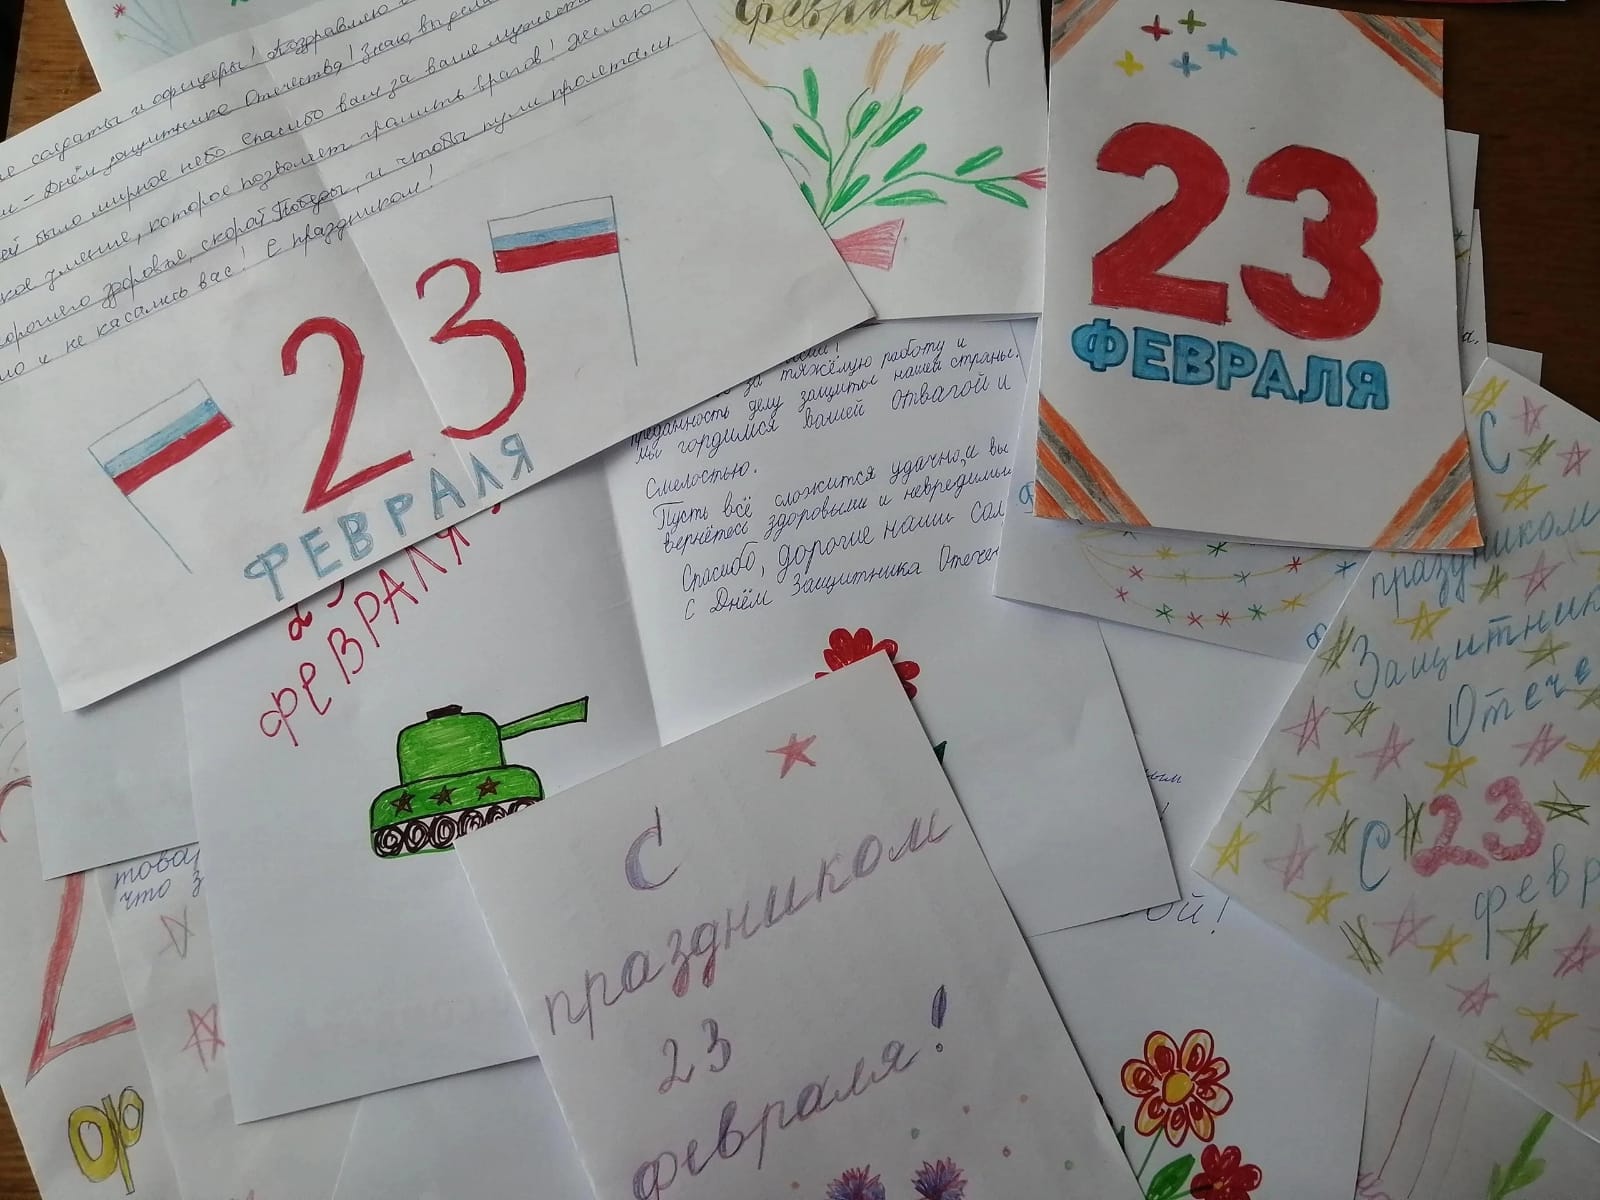 солдаты и офицеры! Поздравляю с
– Днём защитника Отечества! Знаю, впереди
было мирное небо. Спасибо вам за ваше мужество
умение, которое позволяет громить врагов! Желаю
хорошего здоровья, скорой Победы, и чтобы пули пролетали
и не касались вас! С праздником!
23
ФЕВРАЛЯ
февраля
23
ФЕВРАЛЯ
за тяжёлую работу и
преданность делу защиты нашей страны.
Мы гордимся вашей отвагой и
смелостью.
Пусть всё сложится удачно, и вы
вернётесь здоровыми и невредимыми
Спасибо, дорогие наши сол
С Днём Защитника Отечес
ФЕВРАЛЯ!
С
праздником
Защитник
Отече
С 23
февр
това
что з
ой!
С
праздником
23
февраля!